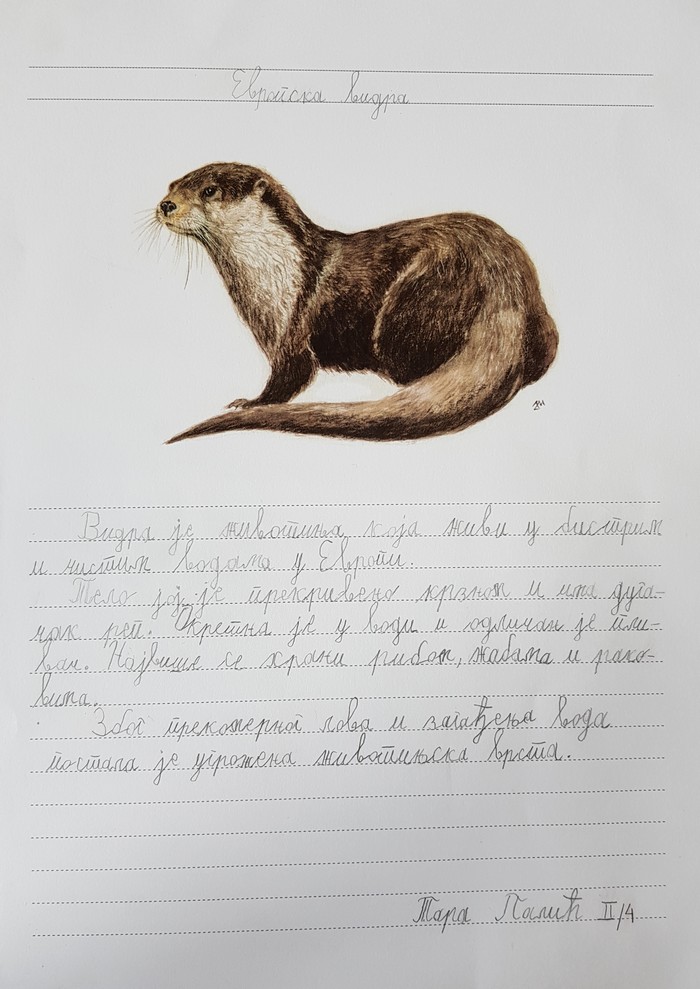 Европска видра
Видра је животиња која живи у бистрим
и чистим водама у Европи.
Тело јој је прекривено крзном и има дуга-
чак реп. Окретна је у води и одличан је пли-
вач. Највише се храни рибом, жабама и рако-
вима.
Због прекомерног лова и загађења вода
постала је угрожена животињска врста.
Тара Палић II/4